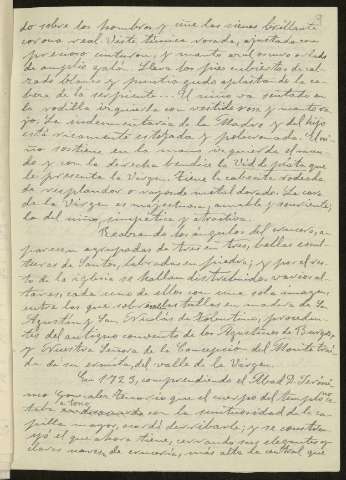 do sobre los hombros y ciñe las sienes brillante
corona real. Viste túnica rosada, ajustada con
precioso cinturon, y manto azul oscuro orlado
de galón. Lleva los pies cubiertos de cal-
zado blanco y puntiagudo aplasta de la ca-
beza de la serpiente... El niño va sentado en
la rodilla izquierda con vestido rosa y manto ro-
jo. La indumentaria de la Madre y del hijo
está ricamente estofada y policromada. El ni-
ño sostiene en la mano izquierda el mun-
do y con la derecha bendice la Vid de plata que
le presenta la Virgen. Tiene la cabecita rodeada
de resplandor o rayos de metal dorado. La cara
de la Virgen es majestuosa, amable y sonriente;
la del niño, simpática y atractiva.
los ángulos del crucero, a-
parecen agrupadas de tres en tres, bellas escul-
turas de Santos, labradas en piedra; y por el res-
to de la iglesia se hallan distribuidos varios al-
tares, cada uno de ellos con una sola imagen,
entre los que sobresalen tallas en madera de San
Agustín y San Nicolás de Tolentino, proceden-
tes del antiguo convento de los Agustinos de Burgos,
y Nuestra Señora de la Concepción del Monte traí-
da de su ermita, del valle de la Virgen.
En 1723, comprendiendo el Abad D. Jeróni-
mo González que el cuerpo del templo no
es-
taba a tono con la suntuosidad de la ca-
pilla mayor, acordó derribarle; y se constru-
yó el que ahora tiene, cerrando sus elegantes y
claras naves, de crucería, más alta la central que